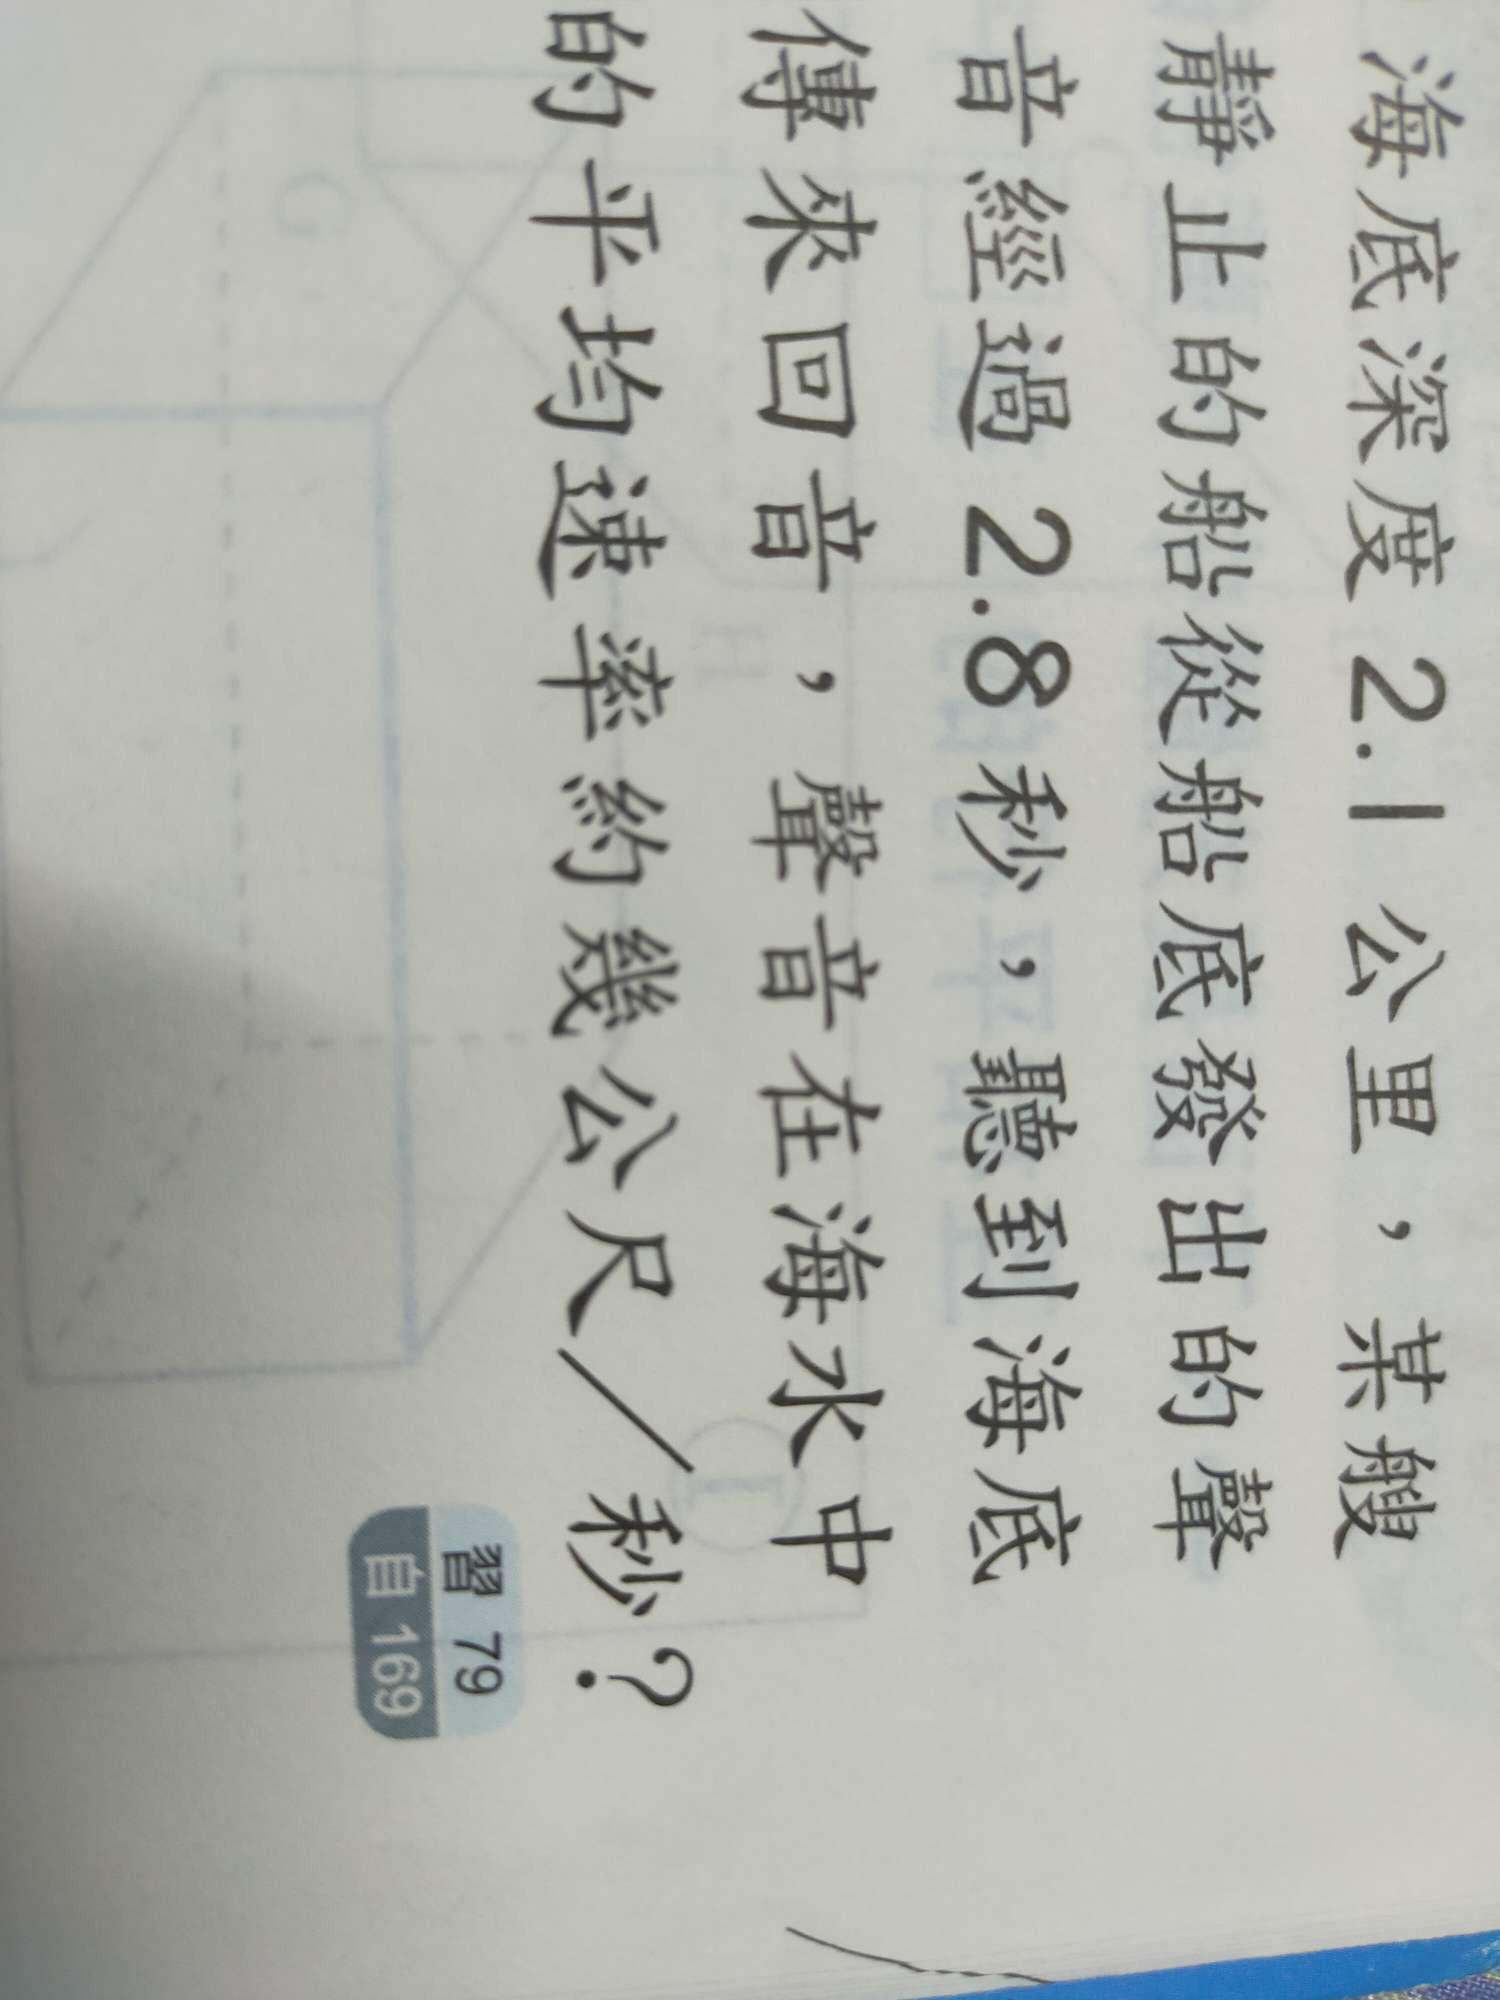 海底深度 2.1 公里，某艘
靜止的船從船底發出的聲
音經過 2.8 秒，聽到海底
傳來回音，聲音在海水中
的平均速率約幾公尺／秒？
習 79
自 169